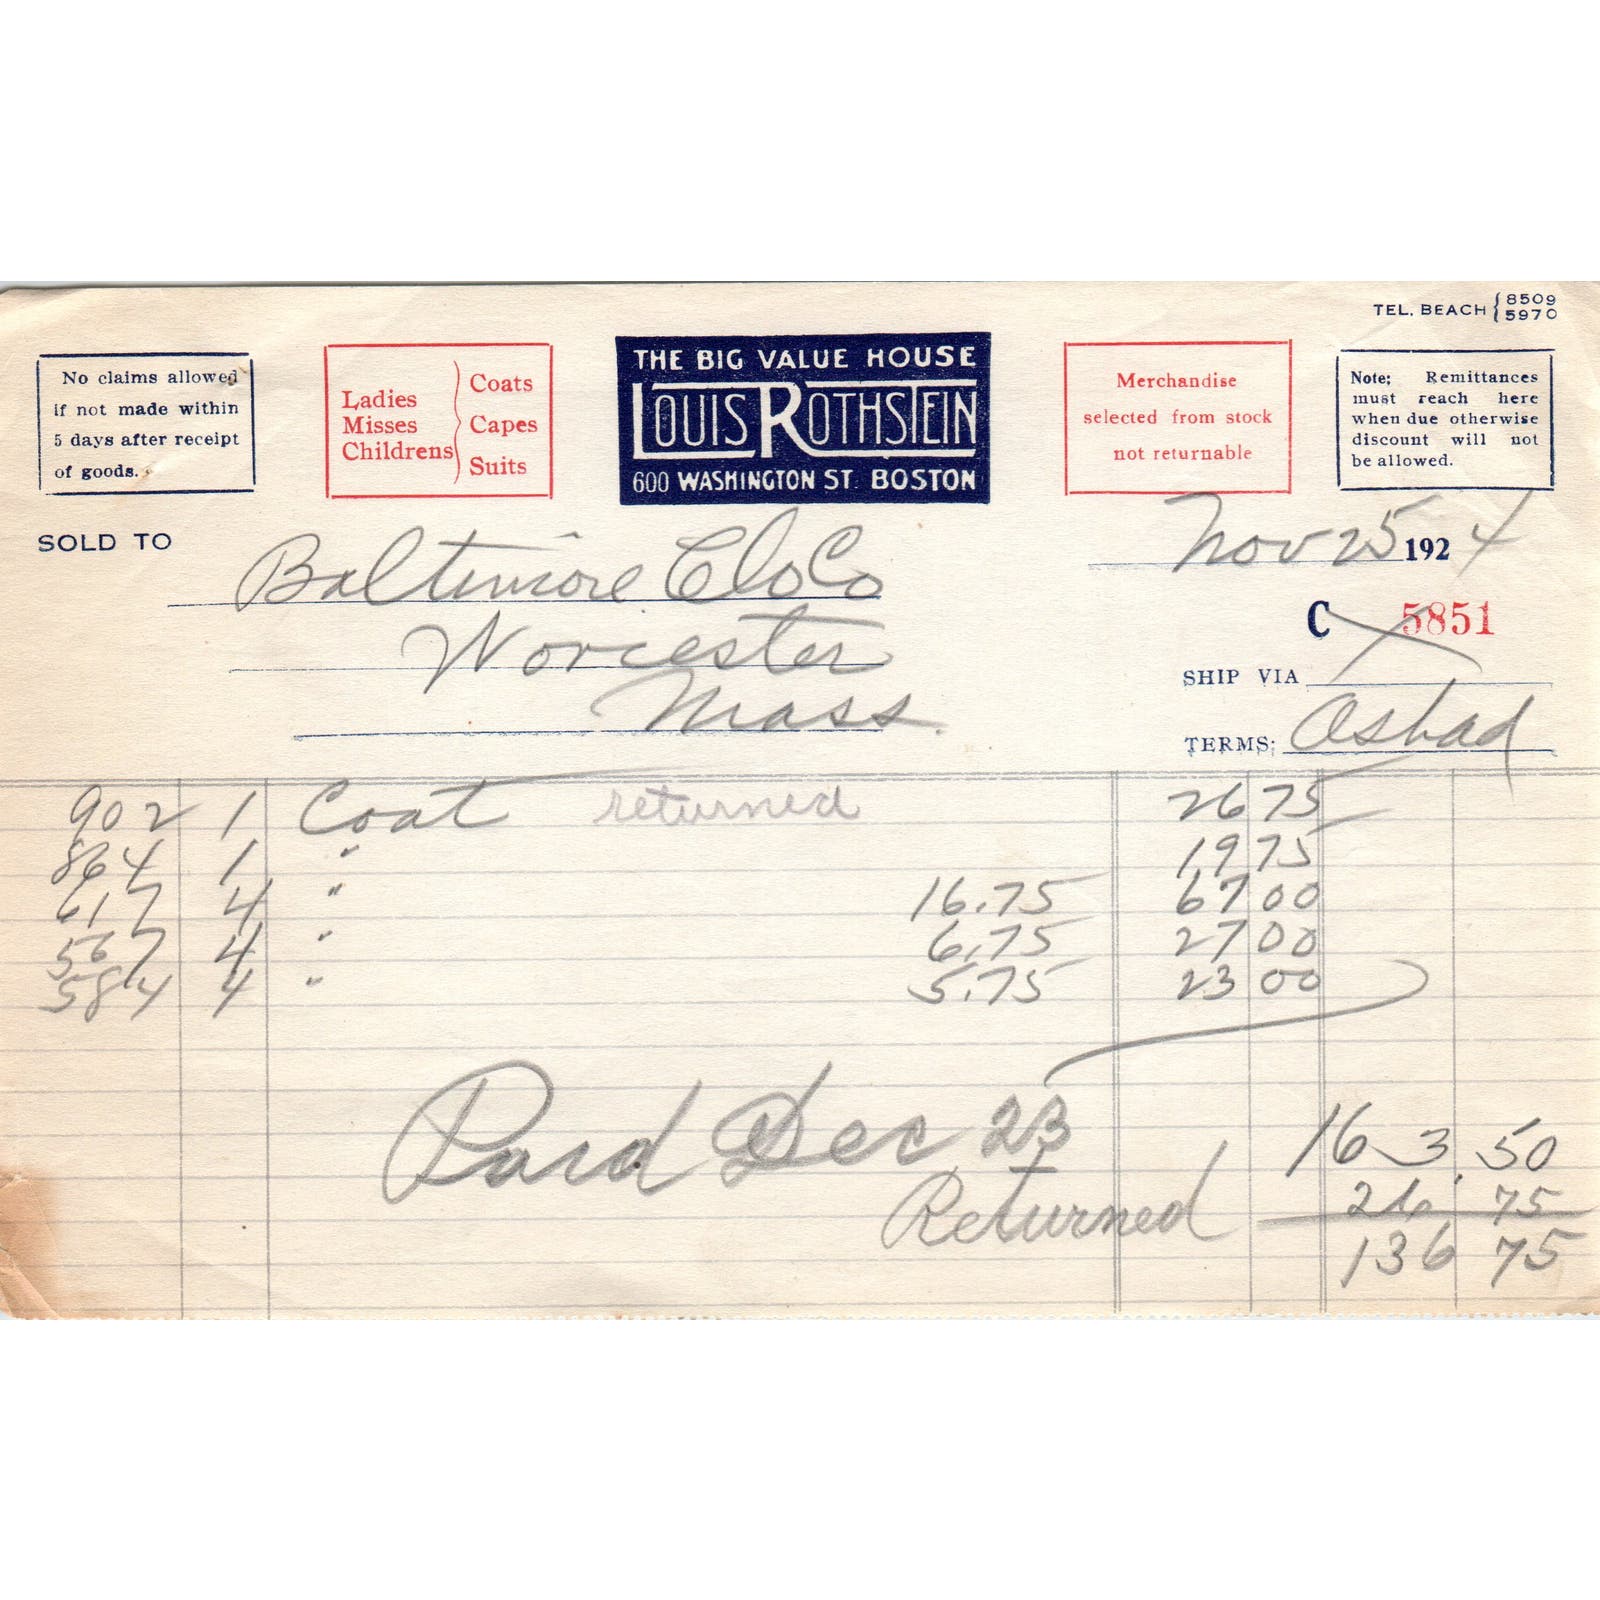 TEL. BEACH { 8509
5970
No claims allowed
if not made within
5 days after receipt
of goods.
Ladies
Misses
Childrens
Coats
Capes
Suits
THE BIG VALUE HOUSE
LOUIS ROTHSTEIN
600 WASHINGTON ST. BOSTON
Merchandise
selected from stock
not returnable
Note; Remittances
must reach here
when due otherwise
discount will not
be allowed.
SOLD TO
Baltimore Clo Co
Worcester
Mass.
Nov 25 1924
C 5851
SHIP VIA
TERMS;
902 1 Coat returned 26 75
864 1 " 19 75
617 4 " 16.75 67 00
567 4 " 6.75 27 00
584 4 " 5.75 23 00
Paid Dec 23
163.50
Returned 26 75
136 75